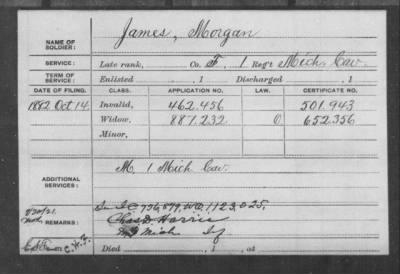 NAME OF SOLDIER: James, Morgan
SERVICE: Late rank, Co. F, 1 Reg't Mich. Cav.
TERM OF SERVICE: Enlisted , 1 Discharged , 1
DATE OF FILING. CLASS. APPLICATION NO. LAW. CERTIFICATE NO.
1882 Oct 14. Invalid, 462.456 501.943
Widow, 887.232 652.356
Minor,
ADDITIONAL SERVICES: M. 1 Mich Cav.
736,579, 1123,025.
REMARKS: Chas D. Harris
Mich
Died , 1 , at